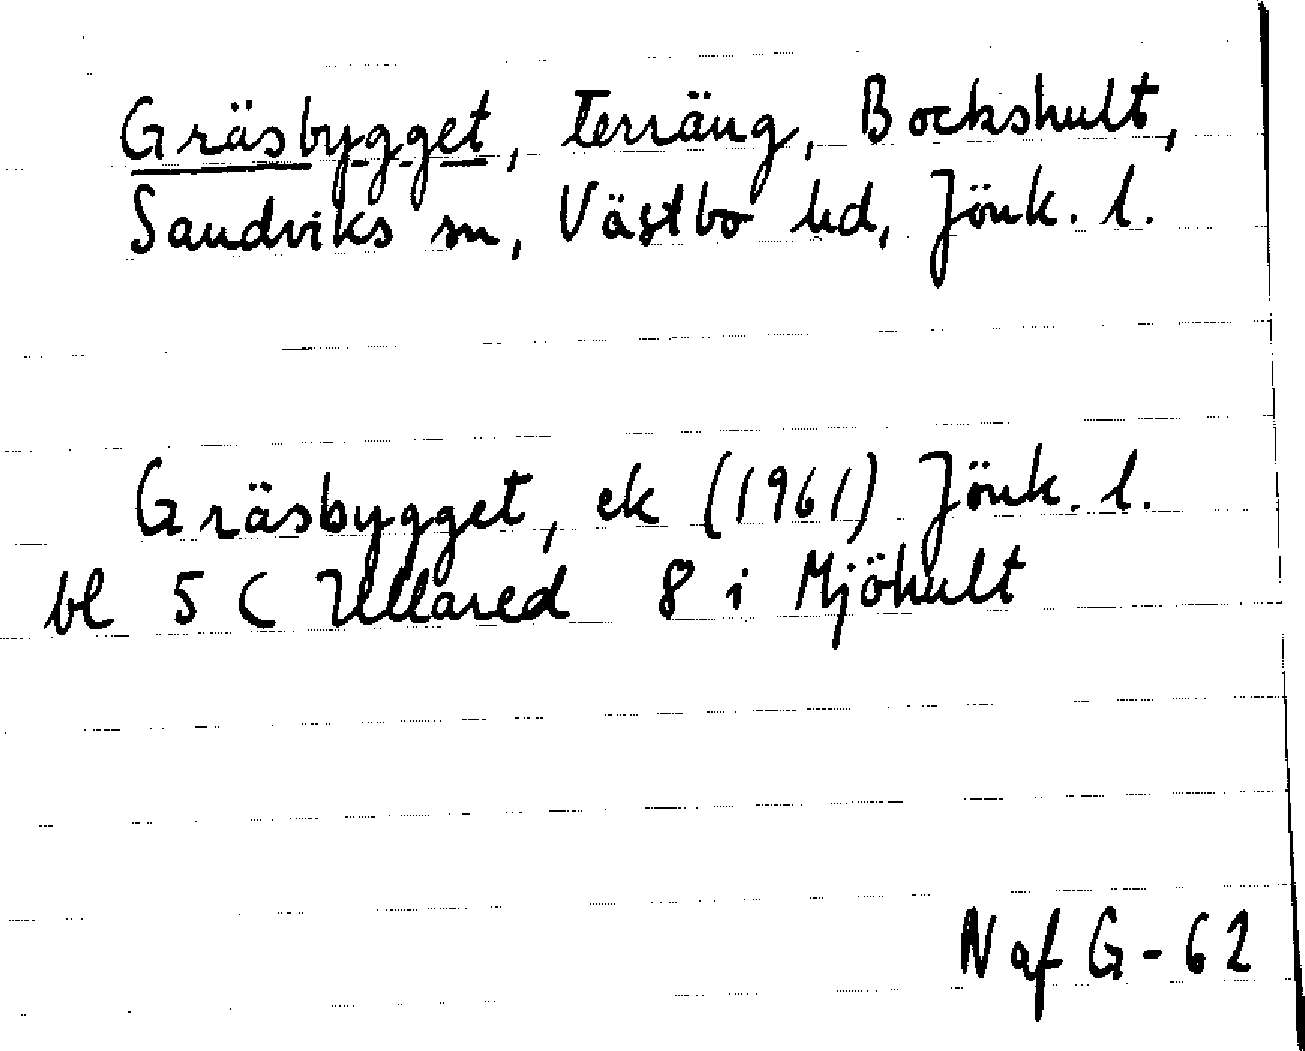 Gräsbygget, terräng, Bockshult,
Sandviks sn, Västbo hd, Jönk. l.
Gräsbygget, ek (1961) Jönk. l.
bl 5 C Ullared 8 i Mjöhult
Naf G-62